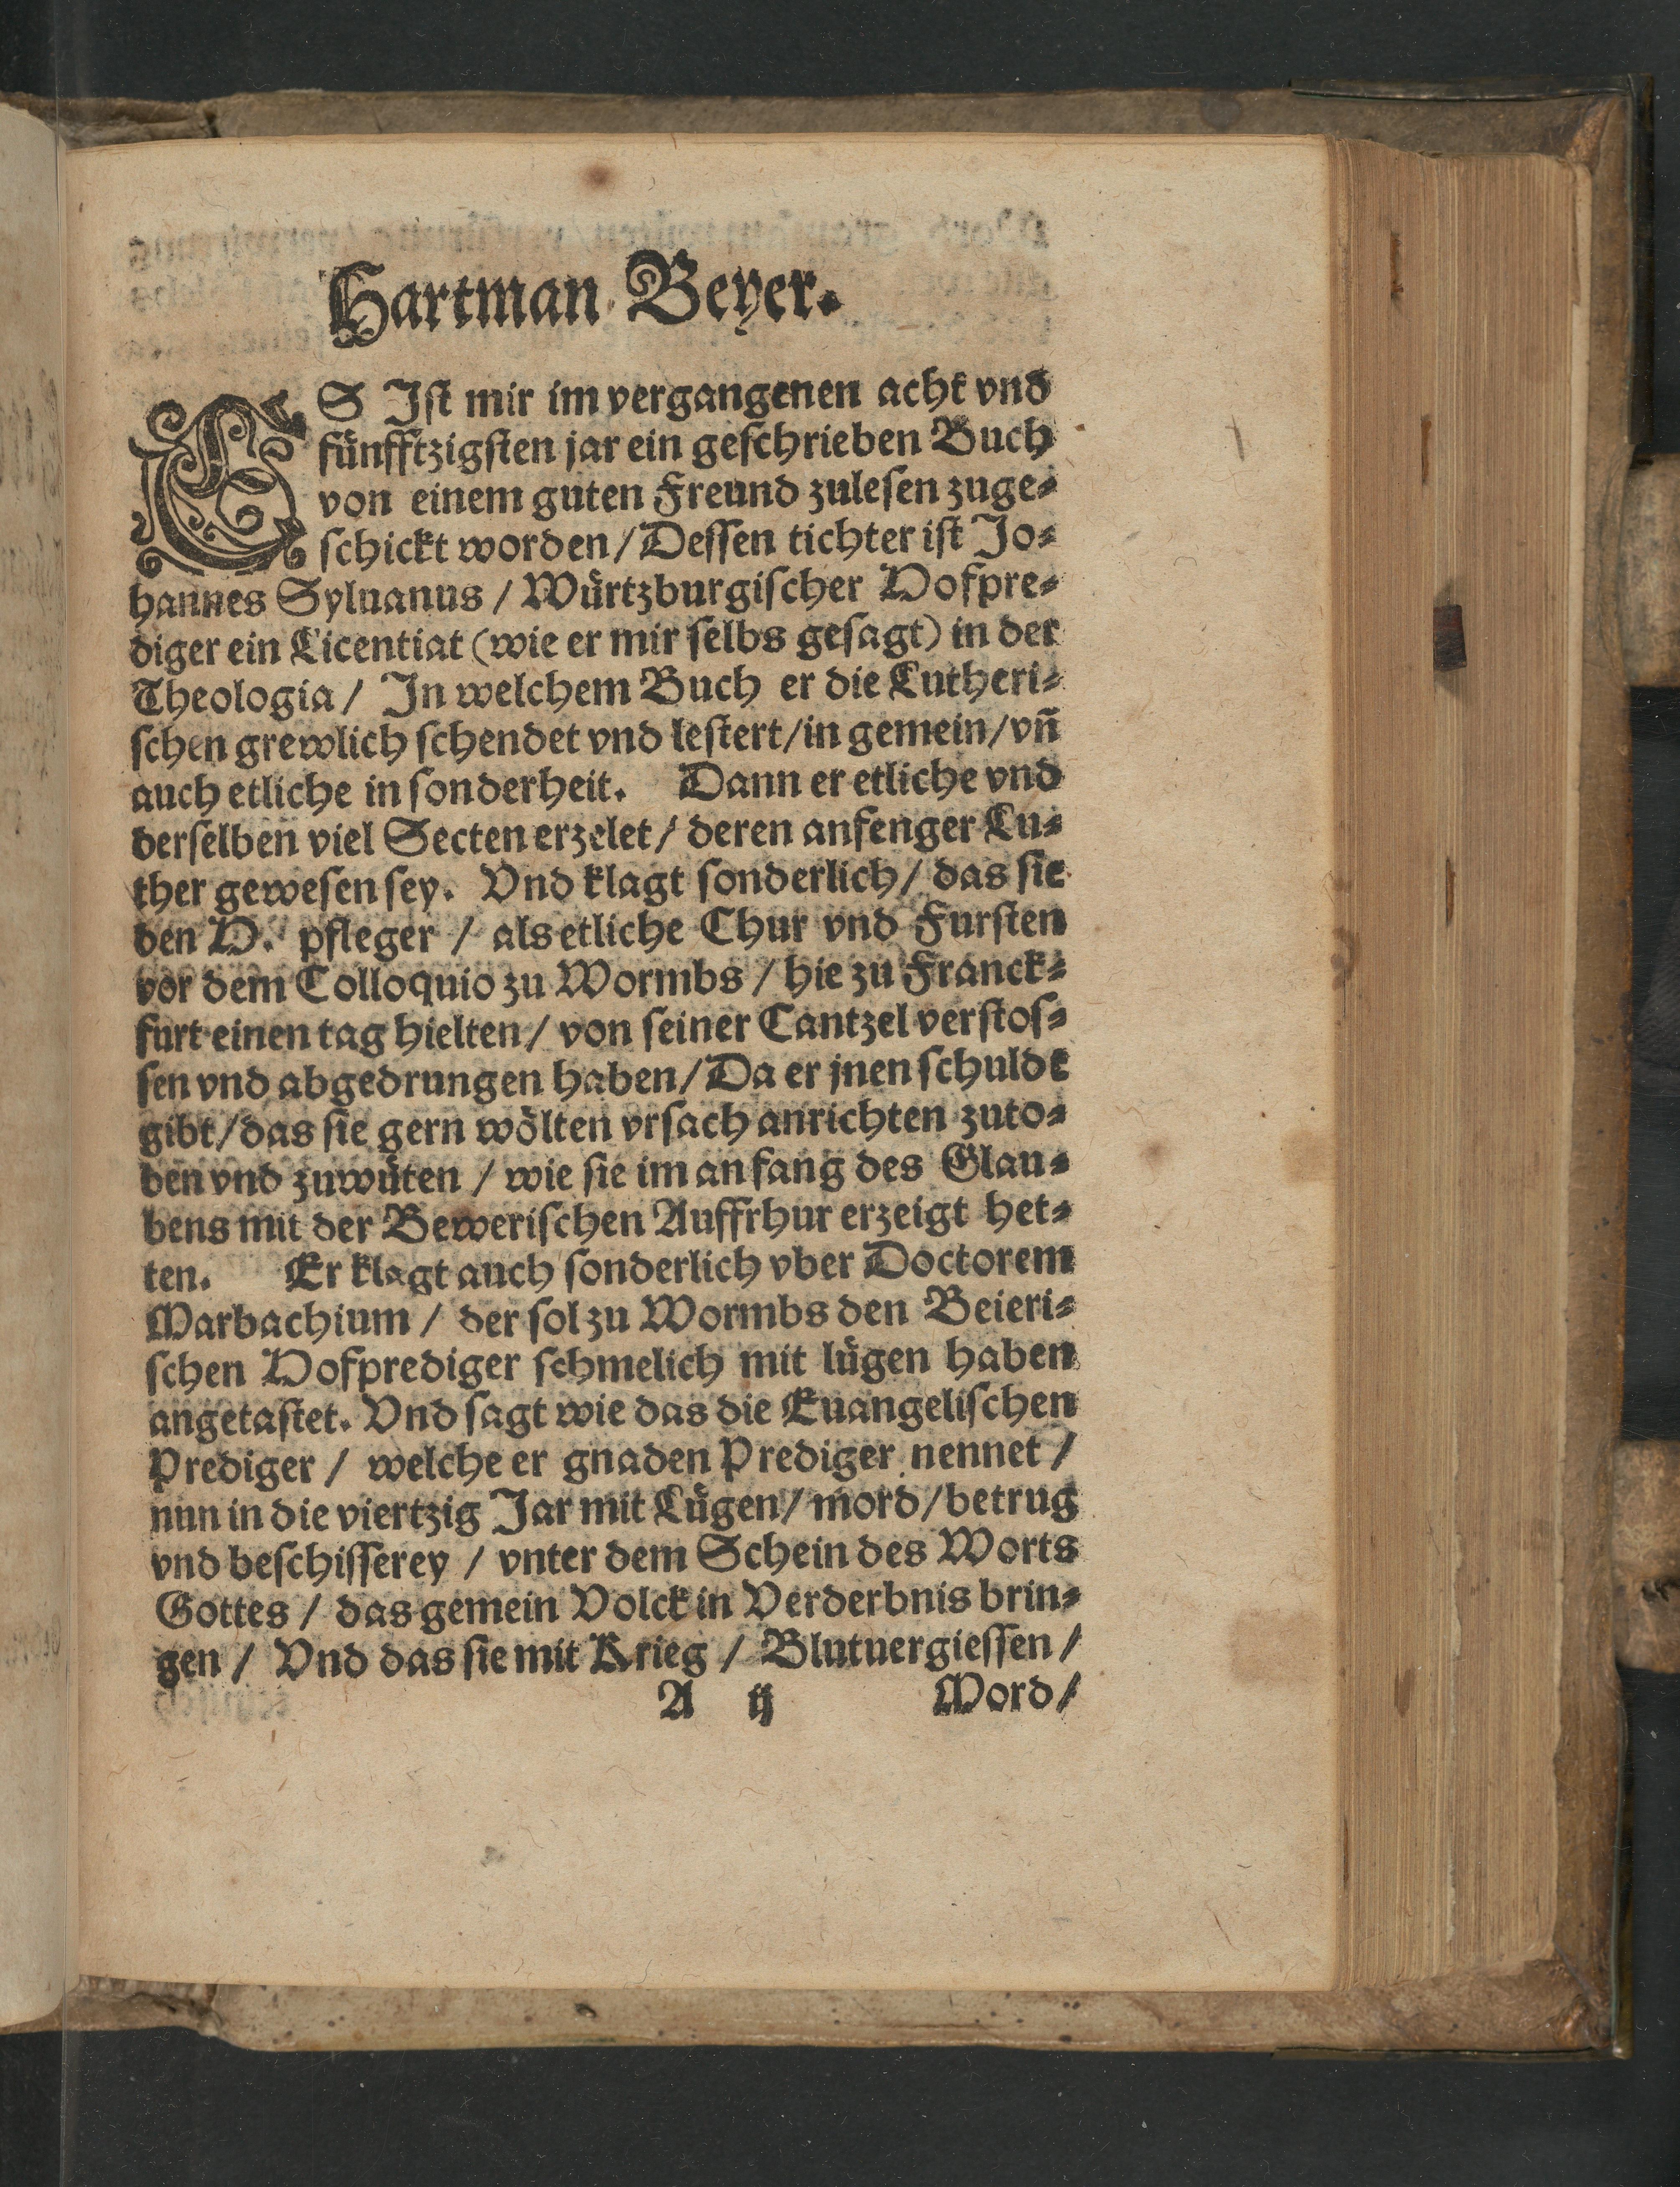 Hartman Beyer.
ES Iſt mir im vergangenen acht vnd
fuͤnfftzigſten jar ein geſchrieben Buch
von einem guten Freund zuleſen zuge⸗
ſchickt worden / Deſſen tichter iſt Jo⸗
hannes Syluanus / Wuͤrtzburgiſcher Hofpre⸗
diger ein Licentiat (wie er mir ſelbs geſagt) in der
Theologia / In welchem Buch er die Lutheri⸗
ſchen grewlich ſchendet vnd leſtert / in gemein / vñ
auch etliche in ſonderheit. Dann er etliche vnd
derſelben viel Secten erzelet / deren anfenger Lu⸗
ther geweſen ſey. Vnd klagt ſonderlich / das ſie
den H. pfleger / als etliche Chur vnd Furſten
vor dem Colloquio zu Wormbs / hie zu Franck⸗
furt einen tag hielten / von ſeiner Cantzel verſtoſ⸗
ſen vnd abgedrungen haben / Da er jnen ſchuldt
gibt / das ſie gern woͤlten vrſach anrichten zuto⸗
ben vnd zuwuͤten / wie ſie im anfang des Glau⸗
bens mit der Beweriſchen Auffrhur erzeigt het⸗
ten. Er klagt auch ſonderlich vber Doctorem
Marbachium / der ſol zu Wormbs den Beieri⸗
ſchen Hofprediger ſchmelich mit luͤgen haben
angetaſtet. Vnd ſagt wie das die Euangeliſchen
Prediger / welche er gnaden Prediger nennet /
nun in die viertzig Jar mit Luͤgen / mord / betrug
vnd beſchiſſerey / vnter dem Schein des Worts
Gottes / das gemein Volck in Verderbnis brin⸗
gen / Vnd das ſie mit Krieg / Blutuergieſſen /
A ij Mord /